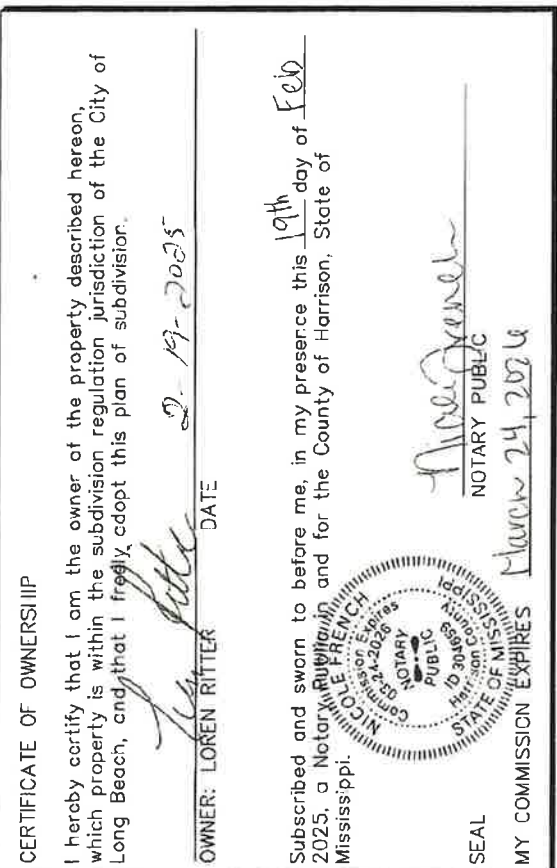 CERTIFICATE OF OWNERSHIP
I hereby certify that I am the owner of the property described hereon,
which property is within the subdivision regulation jurisdiction of the City of
Long Beach, and that I freely adopt this plan of subdivision.
2-19-2025
OWNER: LOREN RITTER DATE
Subscribed and sworn to before me, in my presence this 19th day of Feb
2025, a Notary Public in and for the County of Harrison, State of
Mississippi.
NICOLE FRENCH
Commission Expires
03-24-2026
NOTARY
PUBLIC
ID 304659
Harrison County
STATE OF MISSISSIPPI
SEAL
NOTARY PUBLIC
MY COMMISSION EXPIRES March 24, 2026